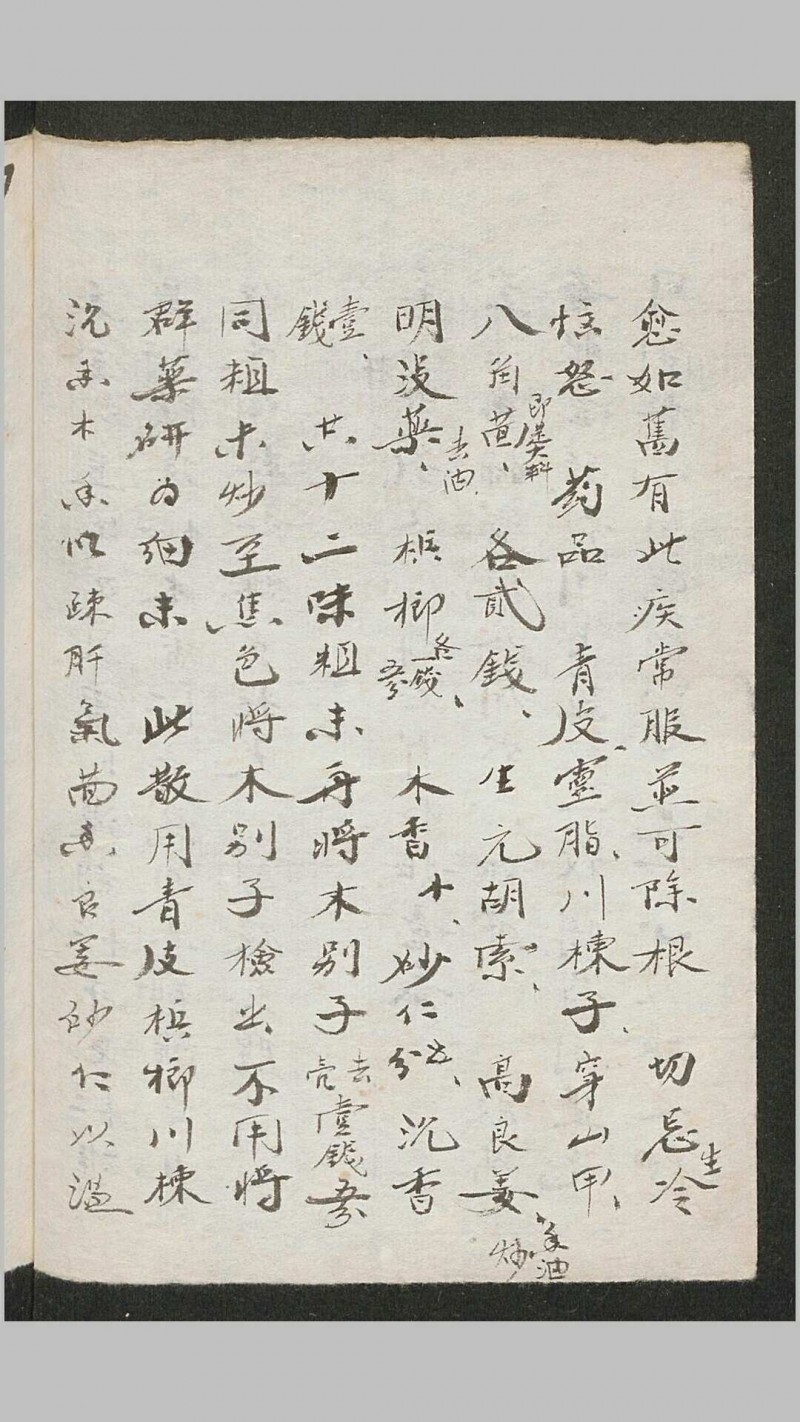 愈如舊有此疾常服並可除根　切忌生冷
怒　药品　青皮、靈脂、川楝子、穿山甲、
八角茴、即是大料　各貳錢、　生元胡索、　高良姜、香油炒
明没藥、去油、　梹榔各一錢五分、　木香十、砂仁七分、沉香
壹錢、　共十二味粗末再將木别子去壳壹錢五分
同粗末炒至焦色將木别子檢出不用將
群藥研为細末　此散用青皮梹榔川楝
沉香木香以疎肝氣茴香良姜砂仁以温